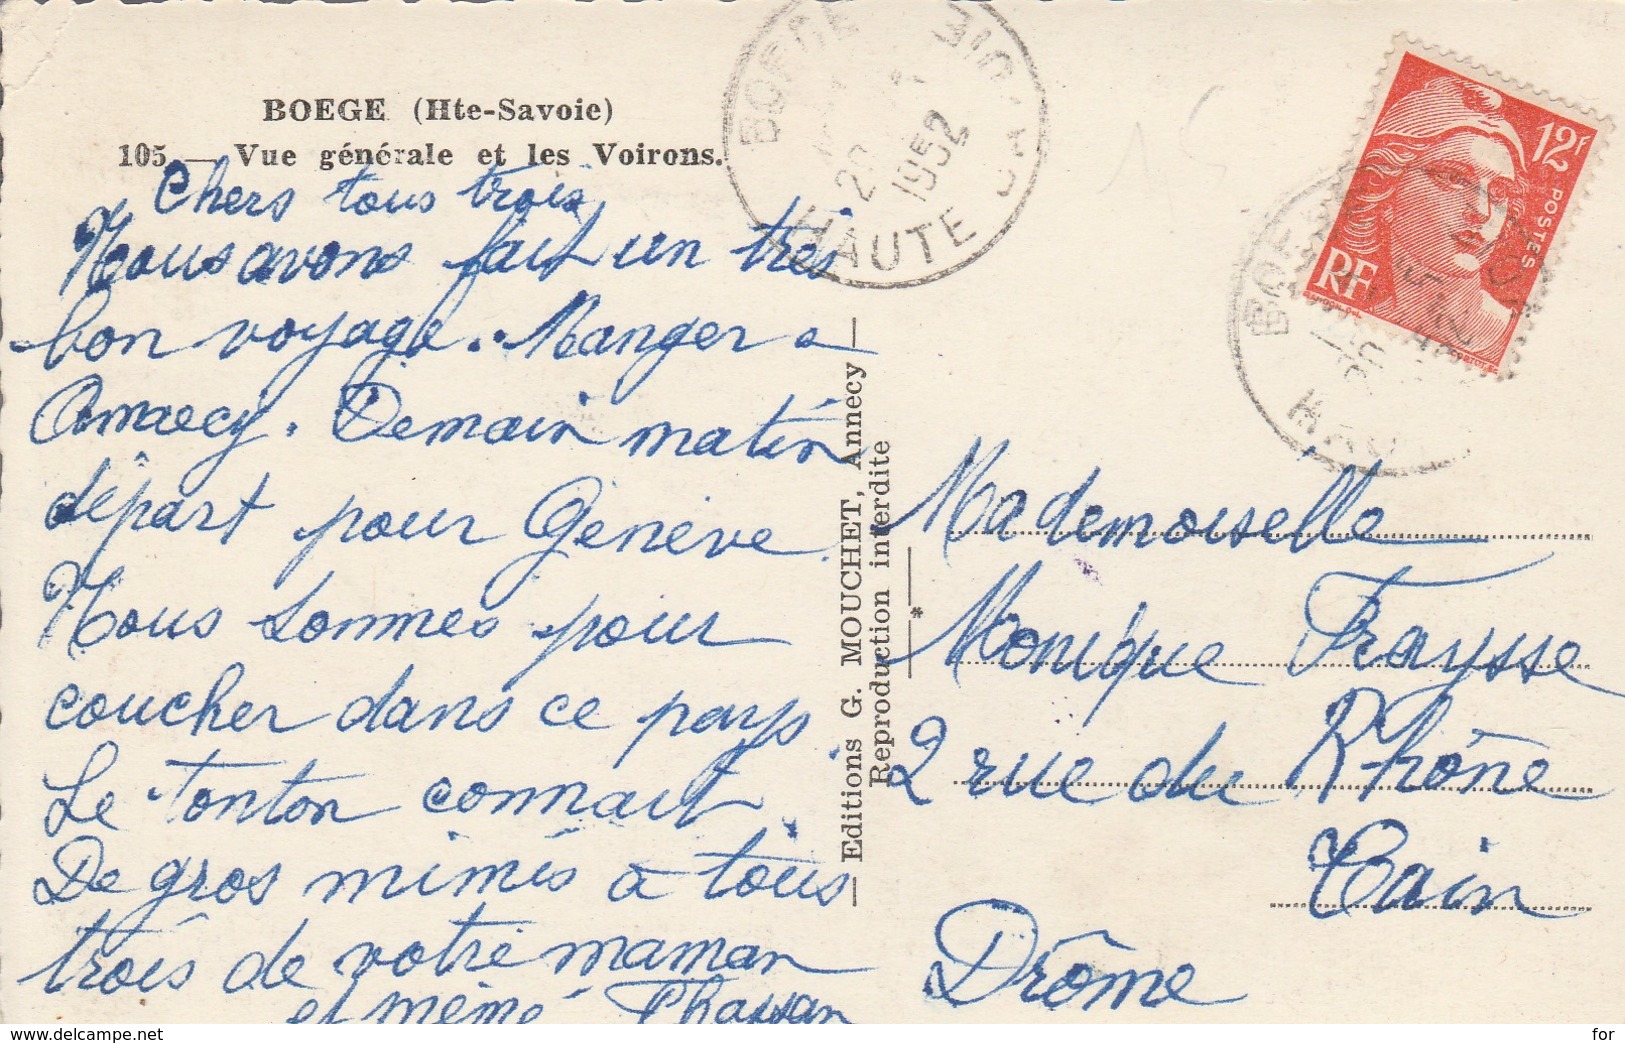 BOEGE (Hte-Savoie)
105. — Vue générale et les Voirons.
Chers tous trois
Nous avons fait un très
bon voyage. Manger a
Annecy. Demain matin
départ pour Genève
Nous sommes pour
coucher dans ce pays
Le tonton connait
De gros mimis a tous
trois de votre maman
et mémé
Editions G. MOUCHET, Annecy
Reproduction interdite
*
BOEGE
1952
HAUTE SAVOIE
12F
POSTES
RF
15
Mademoiselle
Monique Fraysse
2 rue du Rhône
Tain
Drôme
www.delcampe.net
for